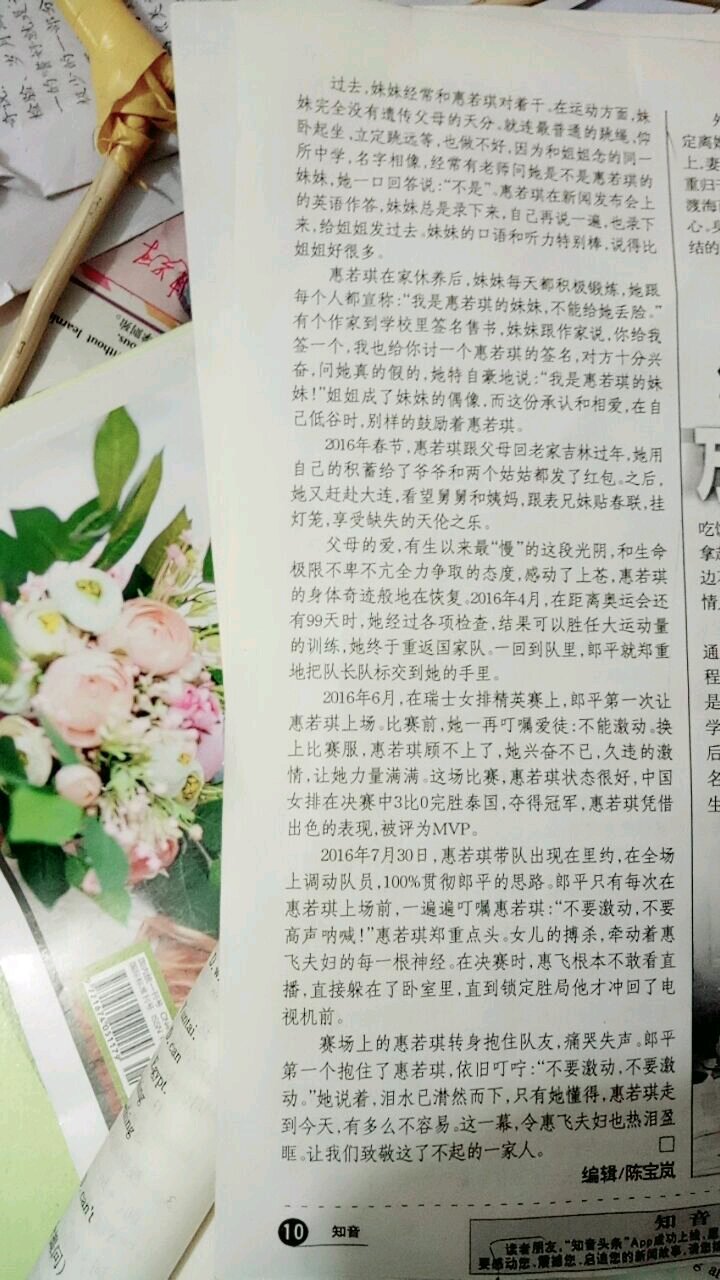 过去，妹妹经常和惠若琪对着干。在运动方面，妹
妹完全没有遗传父母的天分。就连最普通的跳绳，仰
卧起坐，立定跳远等，也做不好，因为和姐姐念的同一
所中学，名字相像，经常有老师问她是不是惠若琪的
妹妹，她一口回答说：“不是”。惠若琪在新闻发布会上
的英语作答，妹妹总是录下来，自己再说一遍，也录下
来，给姐姐发过去。妹妹的口语和听力特别棒，说得比
姐姐好很多。
惠若琪在家休养后，妹妹每天都积极锻炼，她跟
每个人都宣称：“我是惠若琪的妹妹，不能给她丢脸。”
有个作家到学校里签名售书，妹妹跟作家说，你给我
签一个，我也给你讨一个惠若琪的签名，对方十分兴
奋，问她真的假的，她特自豪地说：“我是惠若琪的妹
妹！”姐姐成了妹妹的偶像，而这份承认和相爱，在自
己低谷时，别样的鼓励着惠若琪。
2016年春节，惠若琪跟父母回老家吉林过年，她用
自己的积蓄给了爷爷和两个姑姑都发了红包。之后，
她又赶赴大连，看望舅舅和姨妈，跟表兄妹贴春联，挂
灯笼，享受缺失的天伦之乐。
父母的爱，有生以来最“慢”的这段光阴，和生命
极限不卑不亢全力争取的态度，感动了上苍，惠若琪
的身体奇迹般地在恢复。2016年4月，在距离奥运会还
有99天时，她经过各项检查，结果可以胜任大运动量
的训练，她终于重返国家队。一回到队里，郎平就郑重
地把队长队标交到她的手里。
2016年6月，在瑞士女排精英赛上，郎平第一次让
惠若琪上场。比赛前，她一再叮嘱爱徒：不能激动。换
上比赛服，惠若琪顾不上了，她兴奋不已，久违的激
情，让她力量满满。这场比赛，惠若琪状态很好，中国
女排在决赛中3比0完胜泰国，夺得冠军，惠若琪凭借
出色的表现，被评为MVP。
2016年7月30日，惠若琪带队出现在里约，在全场
上调动队员，100%贯彻郎平的思路。郎平只有每次在
惠若琪上场前，一遍遍叮嘱惠若琪：“不要激动，不要
高声呐喊！”惠若琪郑重点头。女儿的搏杀，牵动着惠
飞夫妇的每一根神经。在决赛时，惠飞根本不敢看直
播，直接躲在了卧室里，直到锁定胜局他才冲回了电
视机前。
赛场上的惠若琪转身抱住队友，痛哭失声。郎平
第一个抱住了惠若琪，依旧叮咛：“不要激动，不要激
动。”她说着，泪水已潸然而下，只有她懂得，惠若琪走
到今天，有多么不容易。这一幕，令惠飞夫妇也热泪盈
眶。让我们致敬这了不起的一家人。
编辑/陈宝岚
10 知音
知音
读者朋友，“知音头条”App成功上线，
要感动您、震撼您、启迪您的新闻故事，请您
定离
上，妻
重归
渡海
心。
结的
吃
拿
边
情
通
程
是
学
后
名
生
thout learnin
can
Egypt.
can't